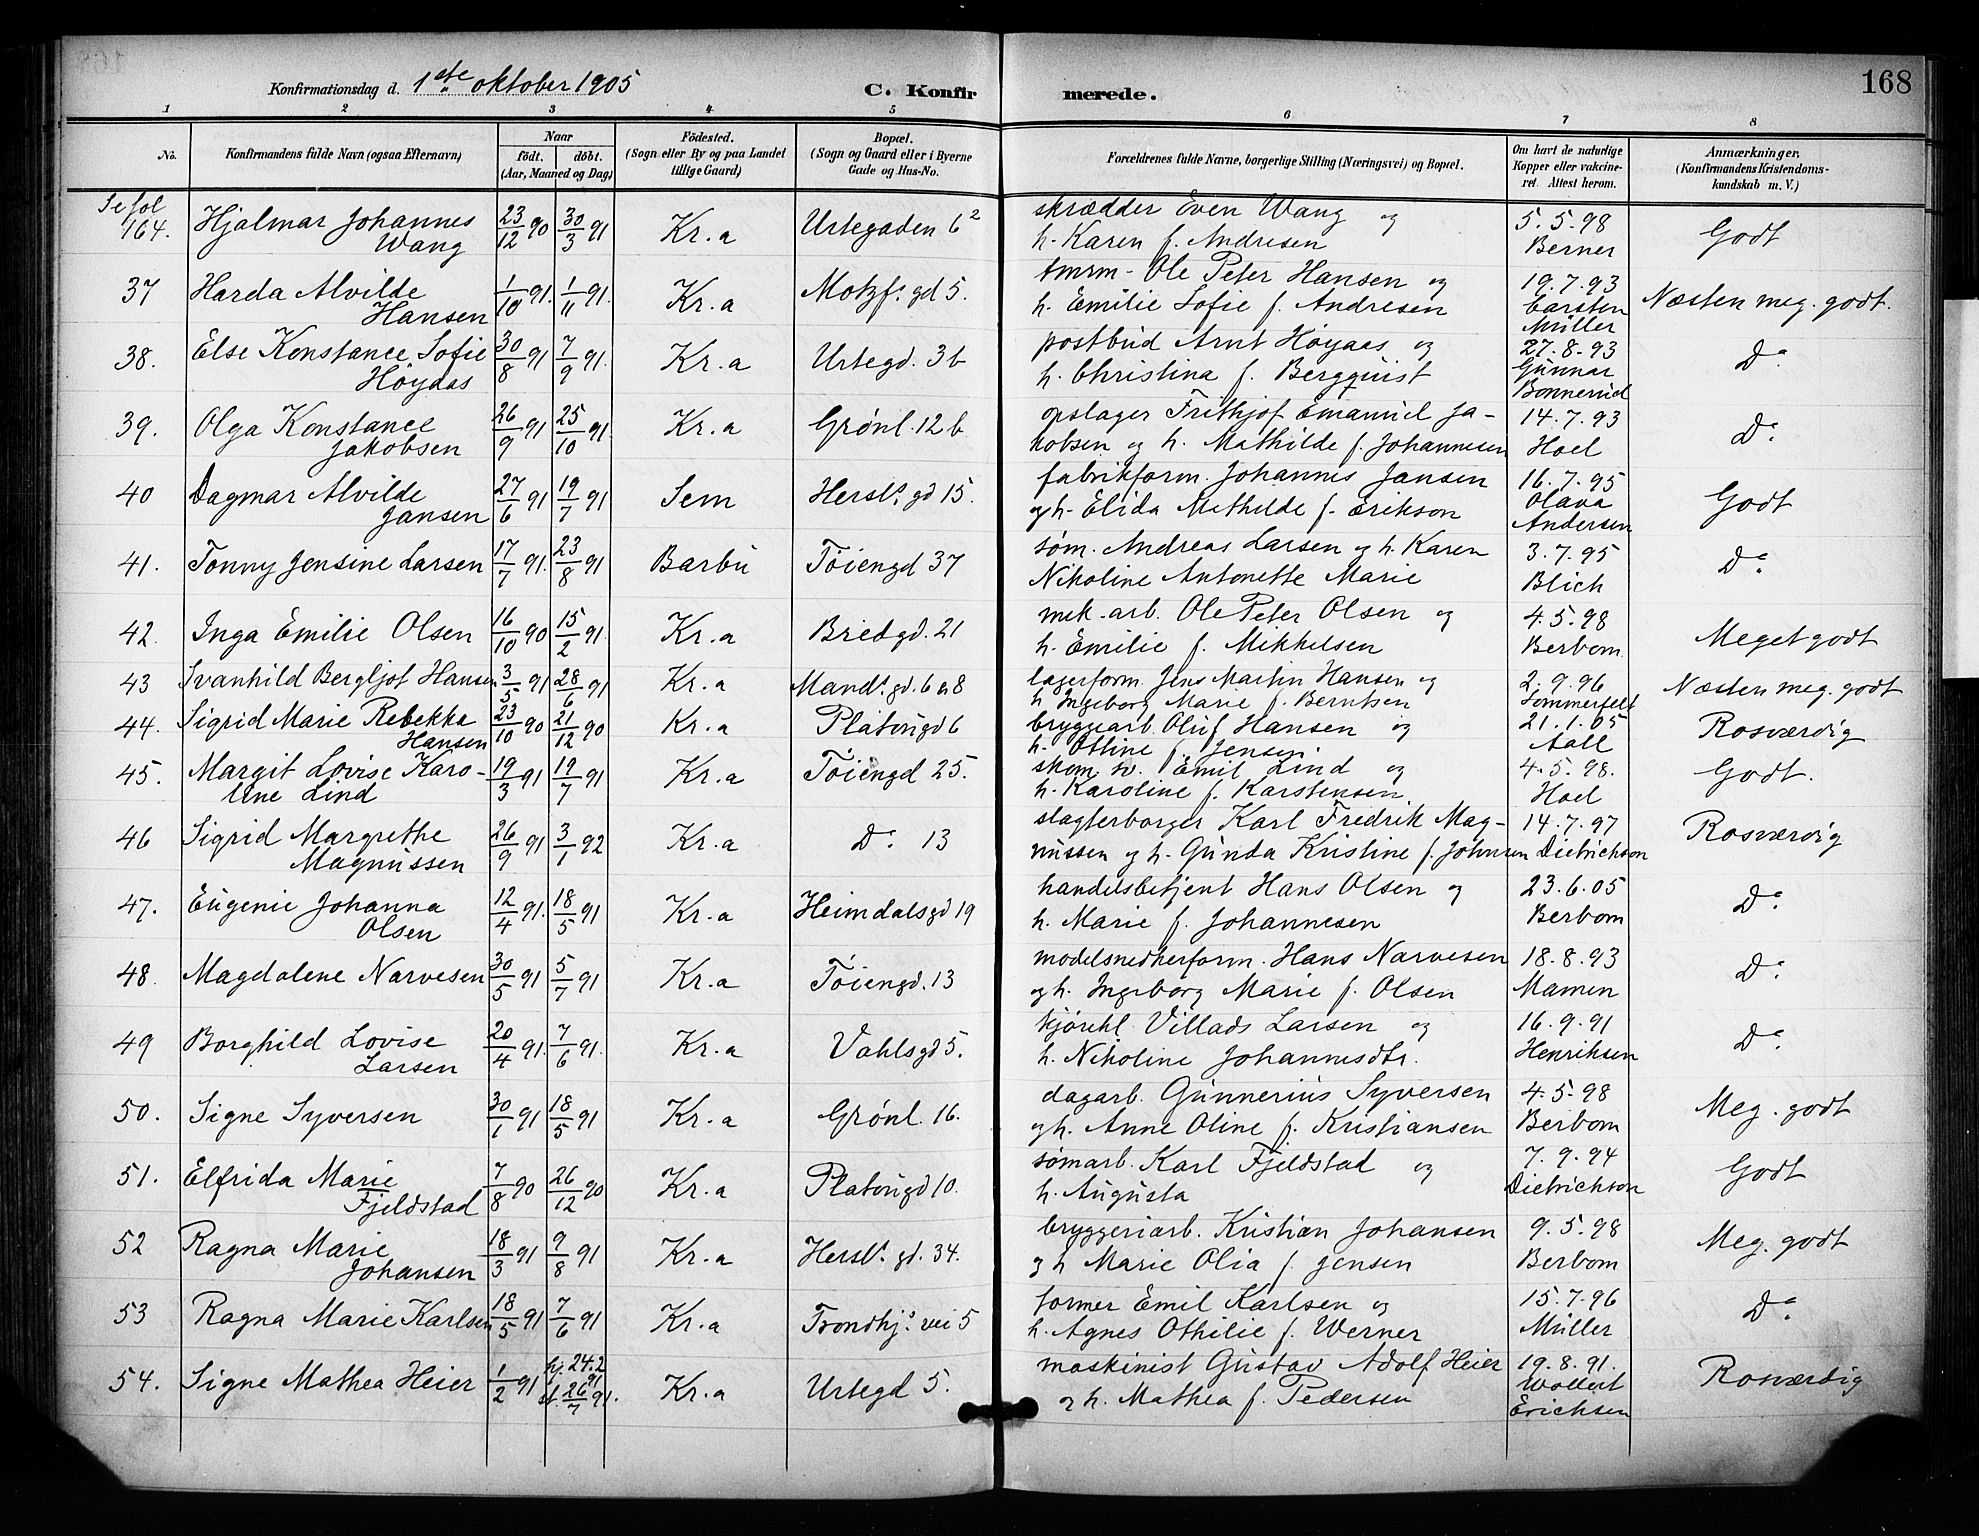 168
Konfirmationsdag d. 1ste oktober 1905
C. Konfirmerede.
1 2 3 4 5 6 7 8
No.
Konfirmandens fulde Navn (ogsaa Efternavn)
Naar
födt. döbt.
(Aar, Maaned og Dag)
Födested.
(Sogn eller By og paa Landet
tillige Gaard)
Bopæl.
(Sogn og Gaard eller i Byerne
Gade og Hus-No.
Forældrenes fulde Navne, borgerlige Stilling (Næringsvei) og Bopæl.
Om havt de naturlige
Kopper eller vakcine-
ret. Attest herom.
Anmærkninger,
(Konfirmandens Kristendoms-
kundskab m. V.)
Se fol
164. Hjalmar Johannes Wang 23/12 90 30/3 91 Kr.a Urtegaden 6² skrædder Even Wang og
h. Karen f. Andresen 5.5.98 Berner Godt
37 Harda Alvilde Hansen 1/10 91. 1/11 91. Kr.a Motzf.s gd 5. tmrm- Ole Peter Hansen og
h. Emilie Sofie f. Andresen 19.7.93 Carsten Müller Næsten meg. godt.
38. Else Konstance Sofie Höyaas 30/8 91 7/9 91. Kr.a Urtegd. 3b postbud Arnt Höyaas og
h. Christina f. Bergquist 27.8.93 Gunnar Bonnerud Do
39. Olga Konstance Jakobsen 26/9 91 25/10 91. Kr.a Grønl. 12b opslager Frithjof Emanuel Ja-
kobsen og h. Mathilde f. Johannesen 14.7.93 Hoel Do
40 Dagmar Alvilde Jansen 27/6 91 19/7 91 Sem Hersl.s gd 15. fabrikform. Johannes Jansen
og h. Elida Mathilde f. Erikson 16.7.95 Olava Andersen Godt
41. Tonny Jensine Larsen 17/7 91. 23/8 91 Barbu Töiengd 37 söm. Andreas Larsen og h. Karen
Nikoline Antonette Marie 3.7.95 Blich Do
42. Inga Emilie Olsen 16/10 90 15/2 91. Kr.a Bredgd. 21 mek. arb. Ole Peter Olsen og
h. Emilie f. Mikkelsen 4.5.98 Berbom Meget godt
43 Svanhild Bergljot Hansen 3/5 91 28/6 91 Kr.a Mands.gd. 6 &8 lagerform. Jens Martin Hansen og
h Ingeborg Marie f. Berntsen 2.9.96 Sommerfelt Næsten meg. godt
44. Sigrid Marie Rebekka Hansen 23/10 90 21/12 90 Kr.a Platougd 6 bryggearb. Oluf Hansen og
h. Othine f. Jensen. 21.1.05 Aall Rosværdig
45. Margit Lovise Karo-
line Lind 19/3 91 19/7 91 Kr.a Töiengd 25. skom. sv. Emil Lind og
h. Karoline f. Karstensen 4.5.98. Hoel Godt.
46 Sigrid Margrethe Magnussen 26/9 91 3/1 92 Kr.a Do 13 slagterborger Karl Fredrik Mag-
nussen og h. Gunda Kristine f. Johnsen 14.7.97 Dietrichson Rosværdig
47. Eugenie Johanna Olsen 12/4 91. 18/5 91 Kr.a Heimdalsgd 19 handelsbetjent Hans Olsen og
h. Marie f. Johannesen 23.6.05 Berbom Do
48. Magdalene Narvesen 30/5 91 5/7 91 Kr.a Töiengd. 13 modelsnedkerform. Hans Narvesen
og h. Ingeborg Marie f. Olsen 18.8.93 Mamen Do
49 Borghild Lovise Larsen 20/4 91. 7/6 91. Kr.a Vahlsgd 5. Villads Larsen og
h. Nikoline Johannesdtr. 16.9.91 Henriksen Do
50. Signe Syversen 30/1 91 18/5 91 Kr.a Grönl. 16. dagarb. Gunnerius Syversen
og h. Anne Oline f. Kristiansen 4.5.98 Berbom Meg. godt
51. Elfrida Marie Fjeldstad 7/8 90 26/12 90 Kr.a Platougd 10. sömarb. Karl Fjeldstad og
h. Augusta 7.9.94 Dietrichson Godt
52 Ragna Marie Johansen 18/3 91 9/8 91 Kr.a Hersl.s gd. 34. bryggeriarb. Kristian Johansen
og h Marie Olia f. Jensen 9.5.98 Berbom Meg. godt
53 Ragna Marie Karlsen 18/5 91 7/6 91 Kr.a Trondhj.s vei 5 former Emil Karlsen og
h. Agnes Othilie f. Werner 15.7.96 Müller Do
54. Signe Mathea Heier 1/2 91 hj. 24.2 91 st. 26/7 91. Kr.a Urtegd 5. maskinist Gustav Adolf Heier
og h. Mathea f. Pedersen 19.8.91. Wollert Erichsen Rosværdig